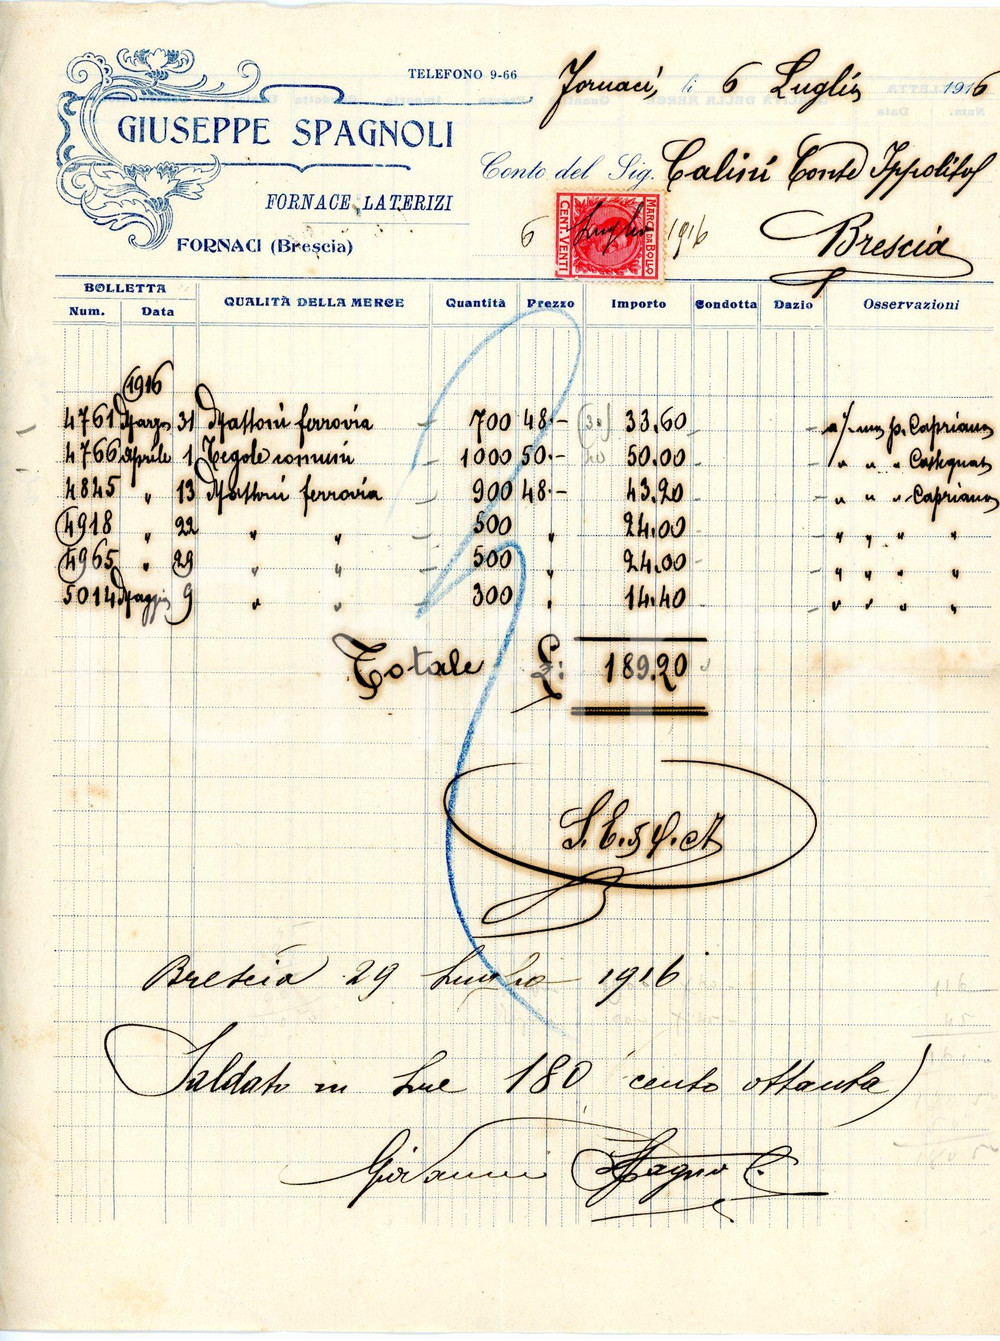 TELEFONO 9-66
Fornaci, li 6 Luglio 1916
GIUSEPPE SPAGNOLI
Conto del Sig. Calini Conte Ippolito
FORNACE LATERIZI
MARCA DA BOLLO
CENT. VENTI
6 Luglio 1916
FORNACI (Brescia)
Brescia
BOLLETTA
Num. Data QUALITÀ DELLA MERCE Quantità Prezzo Importo Condotta Dazio Osservazioni
1916
4761 Marzo 31 Mattoni ferrovia 700 48.- 33.60 p. Capriano
4766 Aprile 1 Tegole comuni 1000 50.- 50.00 " " " Castegnato
4845 " 13 Mattoni ferrovia 900 48.- 43.20 " " " Capriano
4918 " 22 " " 500 " 24.00 " " " "
4965 " 29 " " 500 " 24.00 " " " "
5014 Maggio 9 " " 300 " 14.40 " " " "
Totale £: 189.20
Brescia 29 Luglio 1916
Saldato in Lire 180 cento ottanta
Giovanni